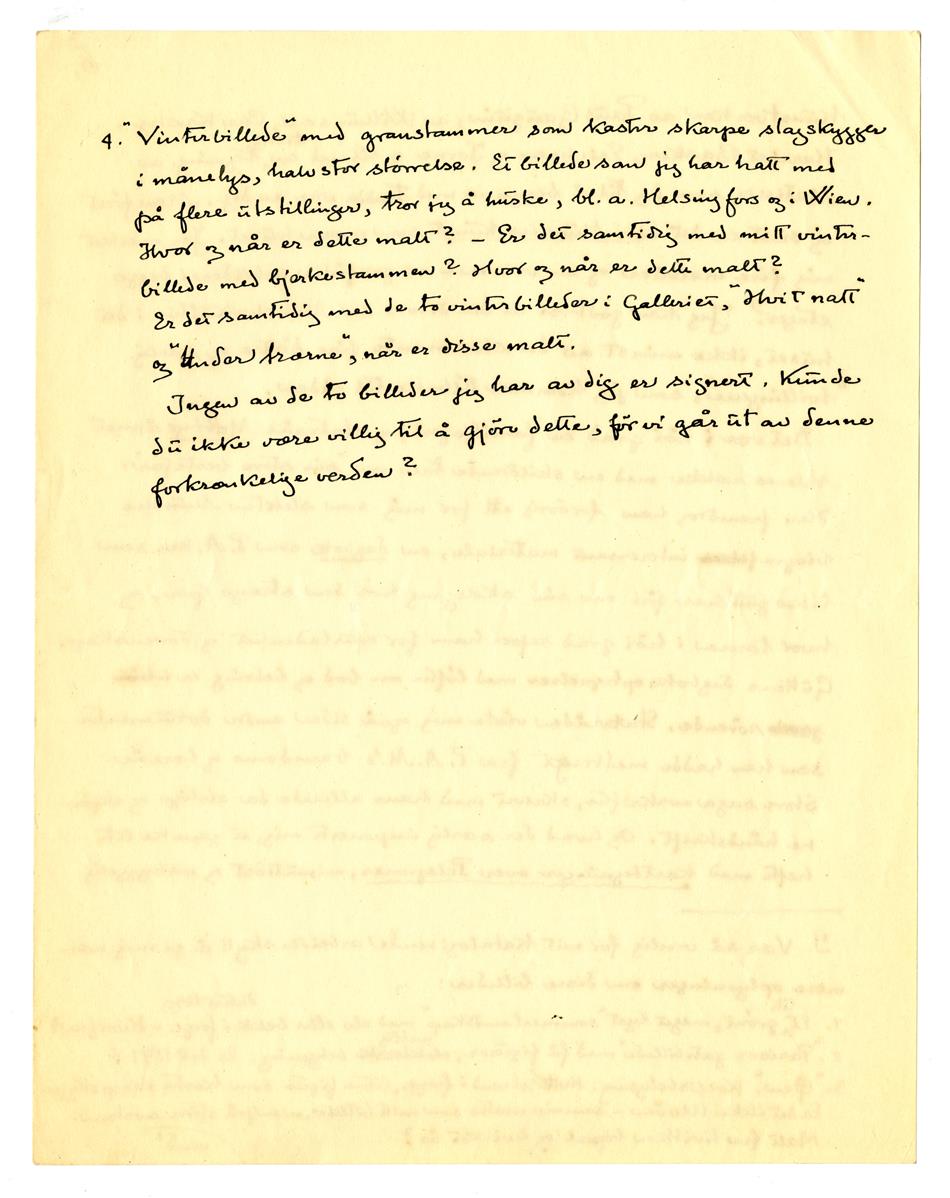 4. "Vinterbillede" med granstammer som kaster skarpe slagskygger
i månelys, halvstor størrelse. Et billede som jeg har hatt med
på flere utstillinger, tror jeg å huske, bl. a. Helsingfors og i Wien.
Hvor og når er dette malt? – Er det samtidig med mitt vinter-
billede med bjerkestammen? Hvor og når er dette malt?
Er det samtidig med de to vinterbilleder i Galleriet, "Hvit natt"
og "Under trærne", når er disse malt.
Ingen av de to billeder jeg har av dig er signert. Kunde
du ikke være villig til å gjöre dette, för vi går ut av denne
forkrænkelige verden?